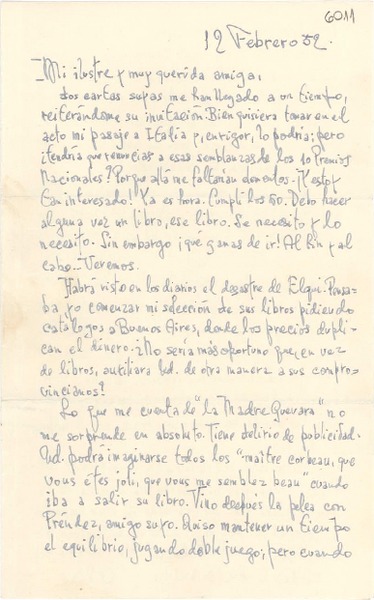 6011
12 Febrero 52.
Mi ilustre y muy querida amiga,
dos cartas suyas me han llegado a un tiempo,
reiterándome su invitación. Bien quisiera tomar en el
acto mi pasaje a Italia y, en rigor, lo podría; pero
¿tendría que renunciar a esas semblanzas de los 10 Premios
Nacionales? Porque allá me faltarían datos. ¡Y estoy
tan interesado! Ya es hora. Cumplí los 50. Debo hacer
alguna vez un libro, ese libro. Se necesito y lo
necesito. Sin embargo ¡qué ganas de ir! Al fin y al
cabo... Veremos.
Habrá visto en los diarios el desastre de Elqui. Pensa-
ba yo comenzar mi selección de sus libros pidiendo
catálogos a Buenos Aires, donde los precios dupli-
can el dinero. ¿No sería más oportuno que, en vez
de libros, auxiliara Ud. de otra manera a sus compro-
vincianos?
Lo que me cuenta de "la Madre Guevara" no
me sorprende en absoluto. Tiene delirio de publicidad.
Ud. podrá imaginarse todos los "maître corbeau, que
vous êtes joli, que vous me semblez beau" cuando
iba a salir su libro. Vino después la pelea con
Préndez, amigo suyo. Quiso mantener un tiempo
el equilibrio, jugando doble juego; pero cuando